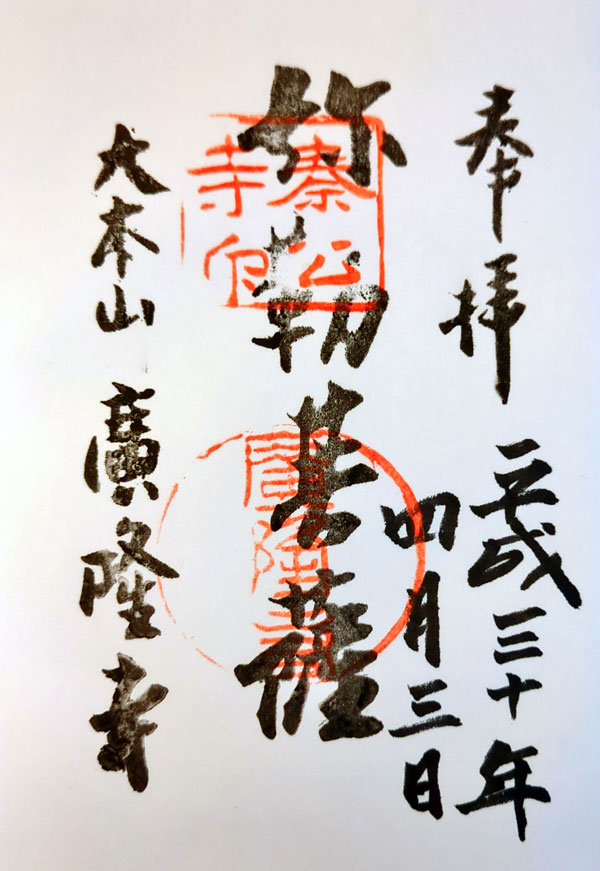 奉拝
平成三十年
四月三日
弥勒菩薩
秦公
寺印
大本山 廣隆寺